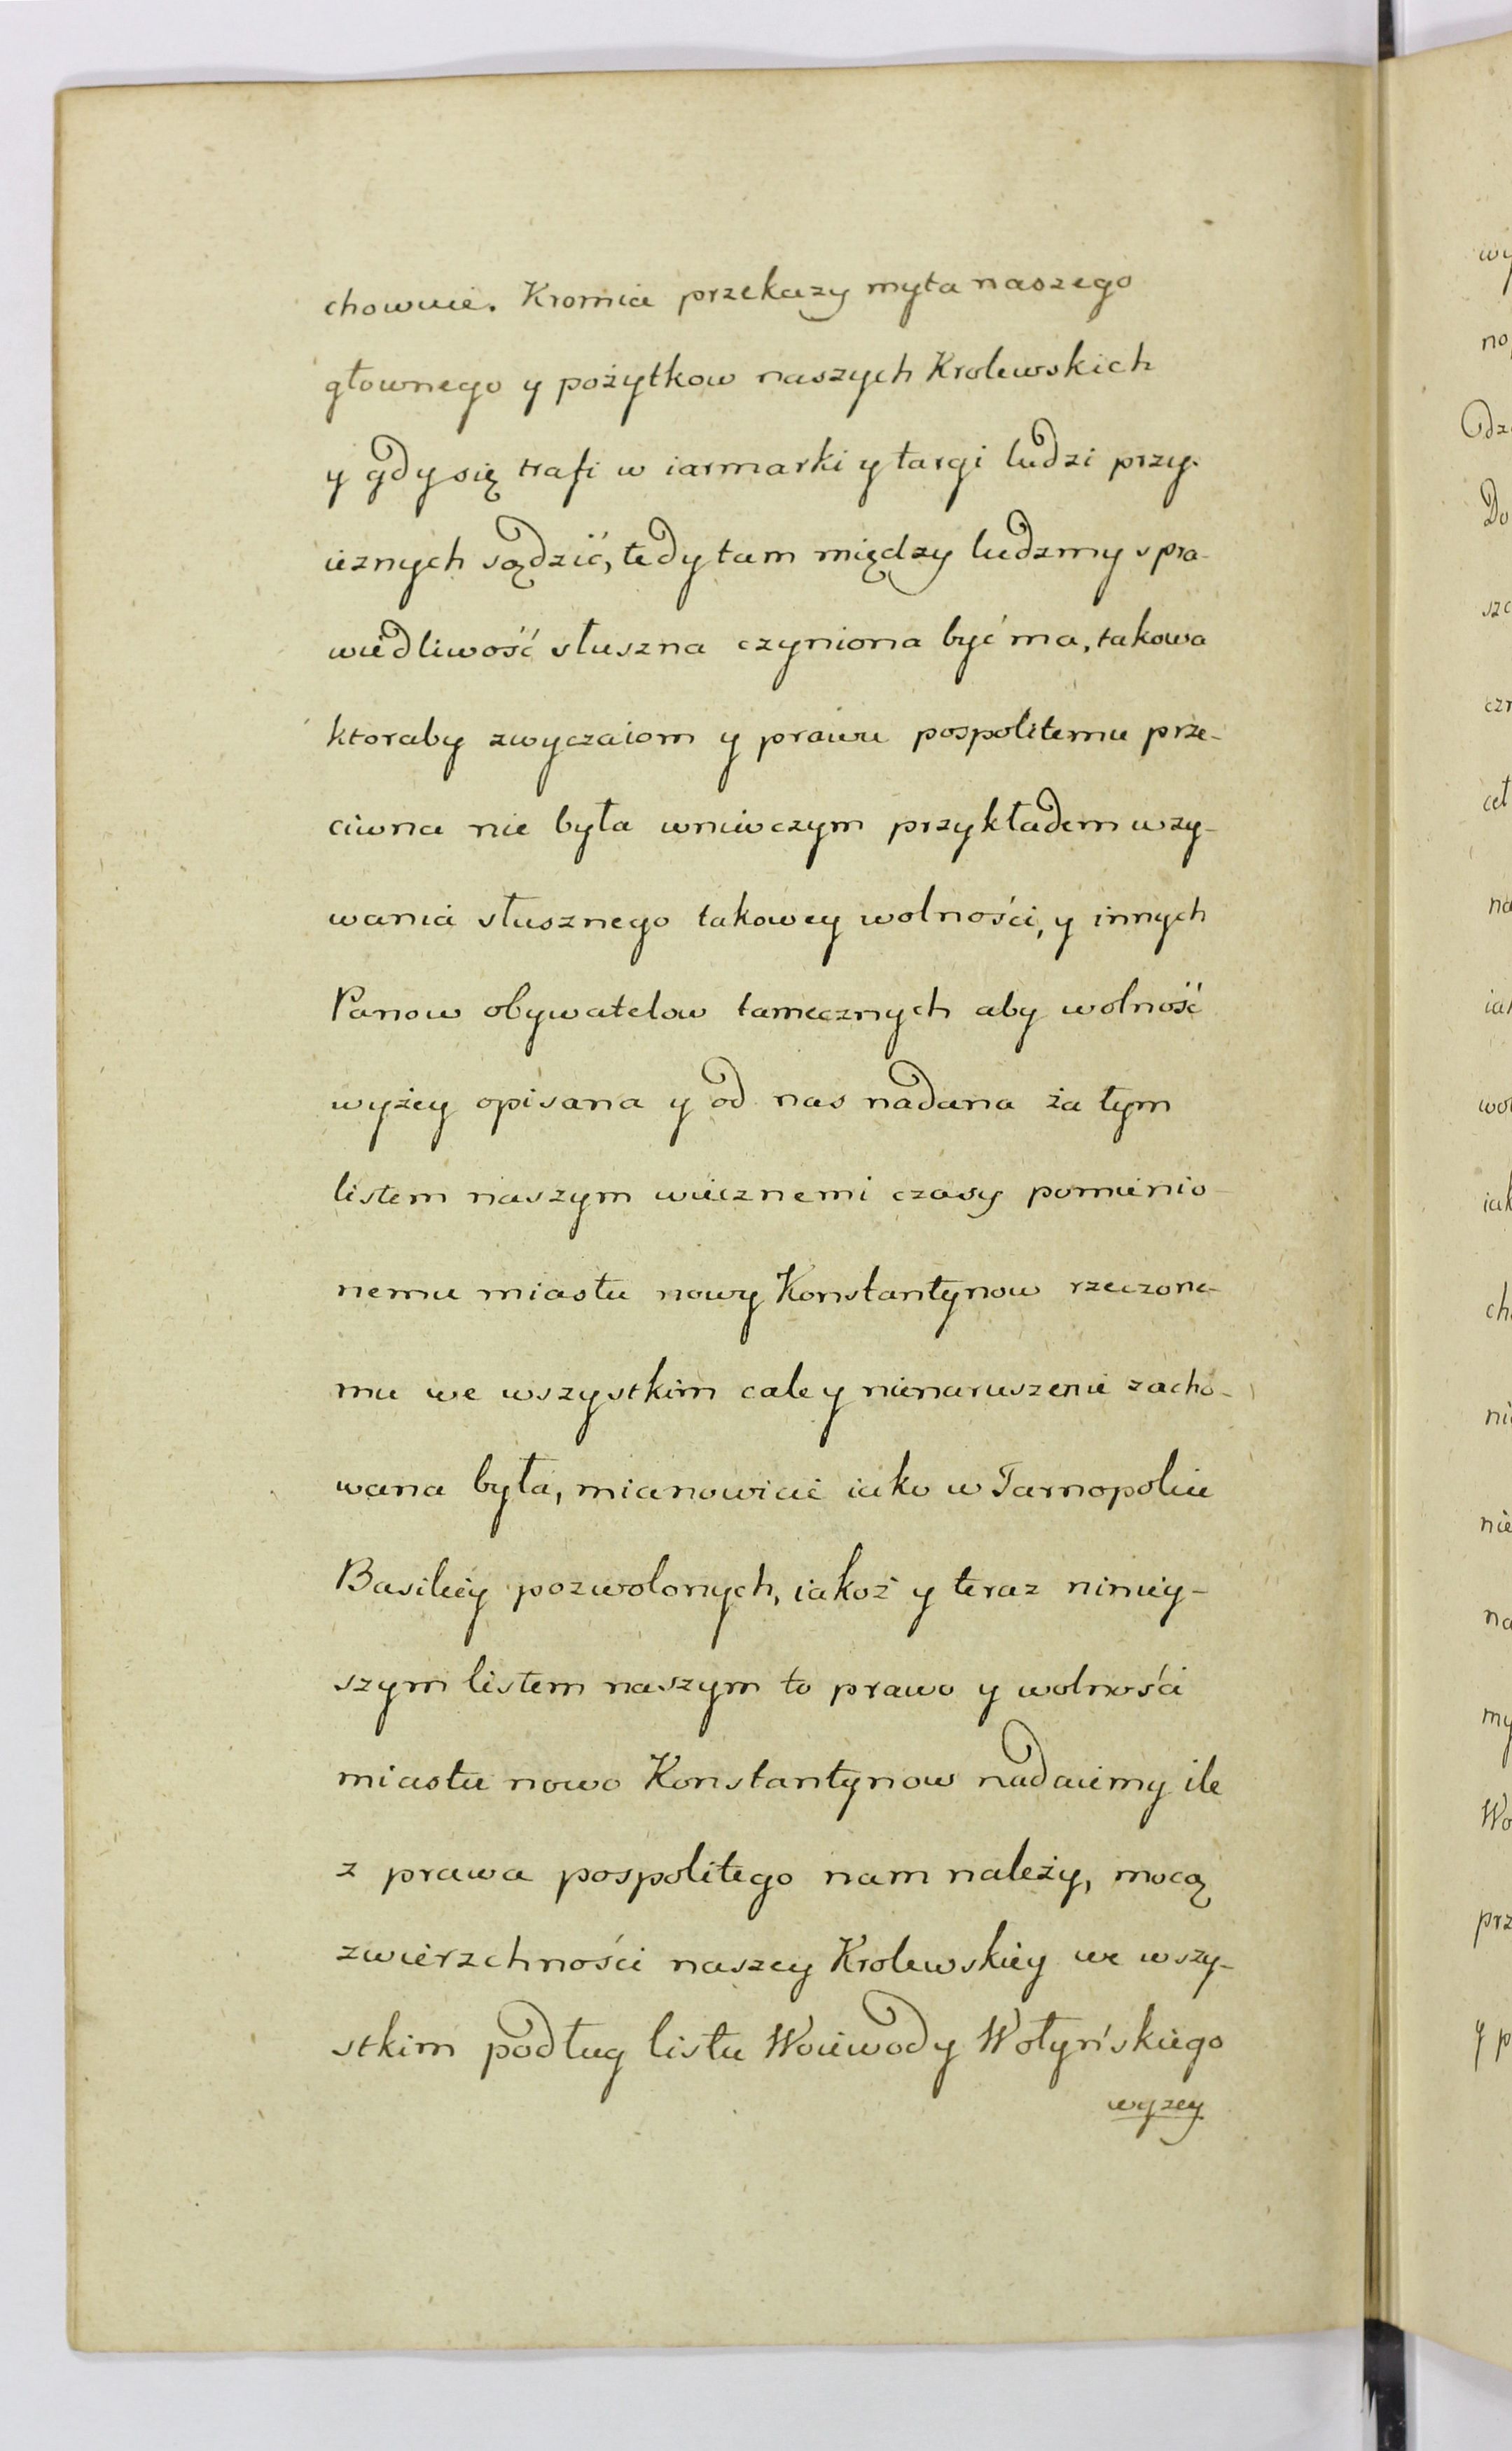 chownie. Kromia przekazy myta naszego
głownego y pożytkow naszych Krolewskich
y gdy się trafi w iarmarki y targi ludzi przy-
ieznych sądzić, tedy tam między ludzmy spra-
wiedliwość słuszna czyniona być ma, takowa
ktoraby zwyczaiom y prawu pospolitemu prze-
ciwna nie była wniwczym przykładem wzy-
wania słusznego takowey wolności, y innych
Panow obywatelow tamecznych aby wolność
wyżey opisana y od nas nadana za tym
listem naszym wiecznemi czasy pomienio-
nemu miastu nowy Konstantynow rzeczone-
mu we wszystkim cale y nienaruszenie zacho-
wana była, mianowicie iako w Tarnopoliu
Basiliey pozwolonych, iakoż y teraz niniey-
szym listem naszym to prawo y wolności
miastu nowo Konstantynow nadaiemy ile
z prawa pospolitego nam należy, mocą
zwierzchności naszey Krolewskiey we wszy-
stkim podług listu Woiewody Wołyńskiego
wyzey